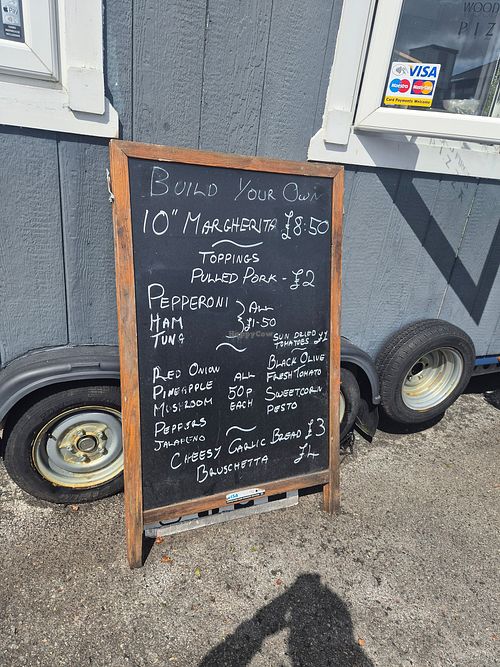 WOOD
PIZ
VISA
MasterCard
Card Payments Welcome
BUILD YOUR OWN
10" MARGHERITA £8:50
TOPPINGS
PULLED PORK - £2
PEPPERONI
HAM
TUNA
ALL
£1-50
SUN DRIED
TOMATOES £1
RED ONION
PINEAPPLE
MUSHROOM
PEPPERS
JALAPENO
ALL
50p
EACH
BLACK OLIVE
FRESH TOMATO
SWEETCORN
PESTO
CHEESY GARLIC BREAD £3
BRUSCHETTA £4
VISA
HappyCow